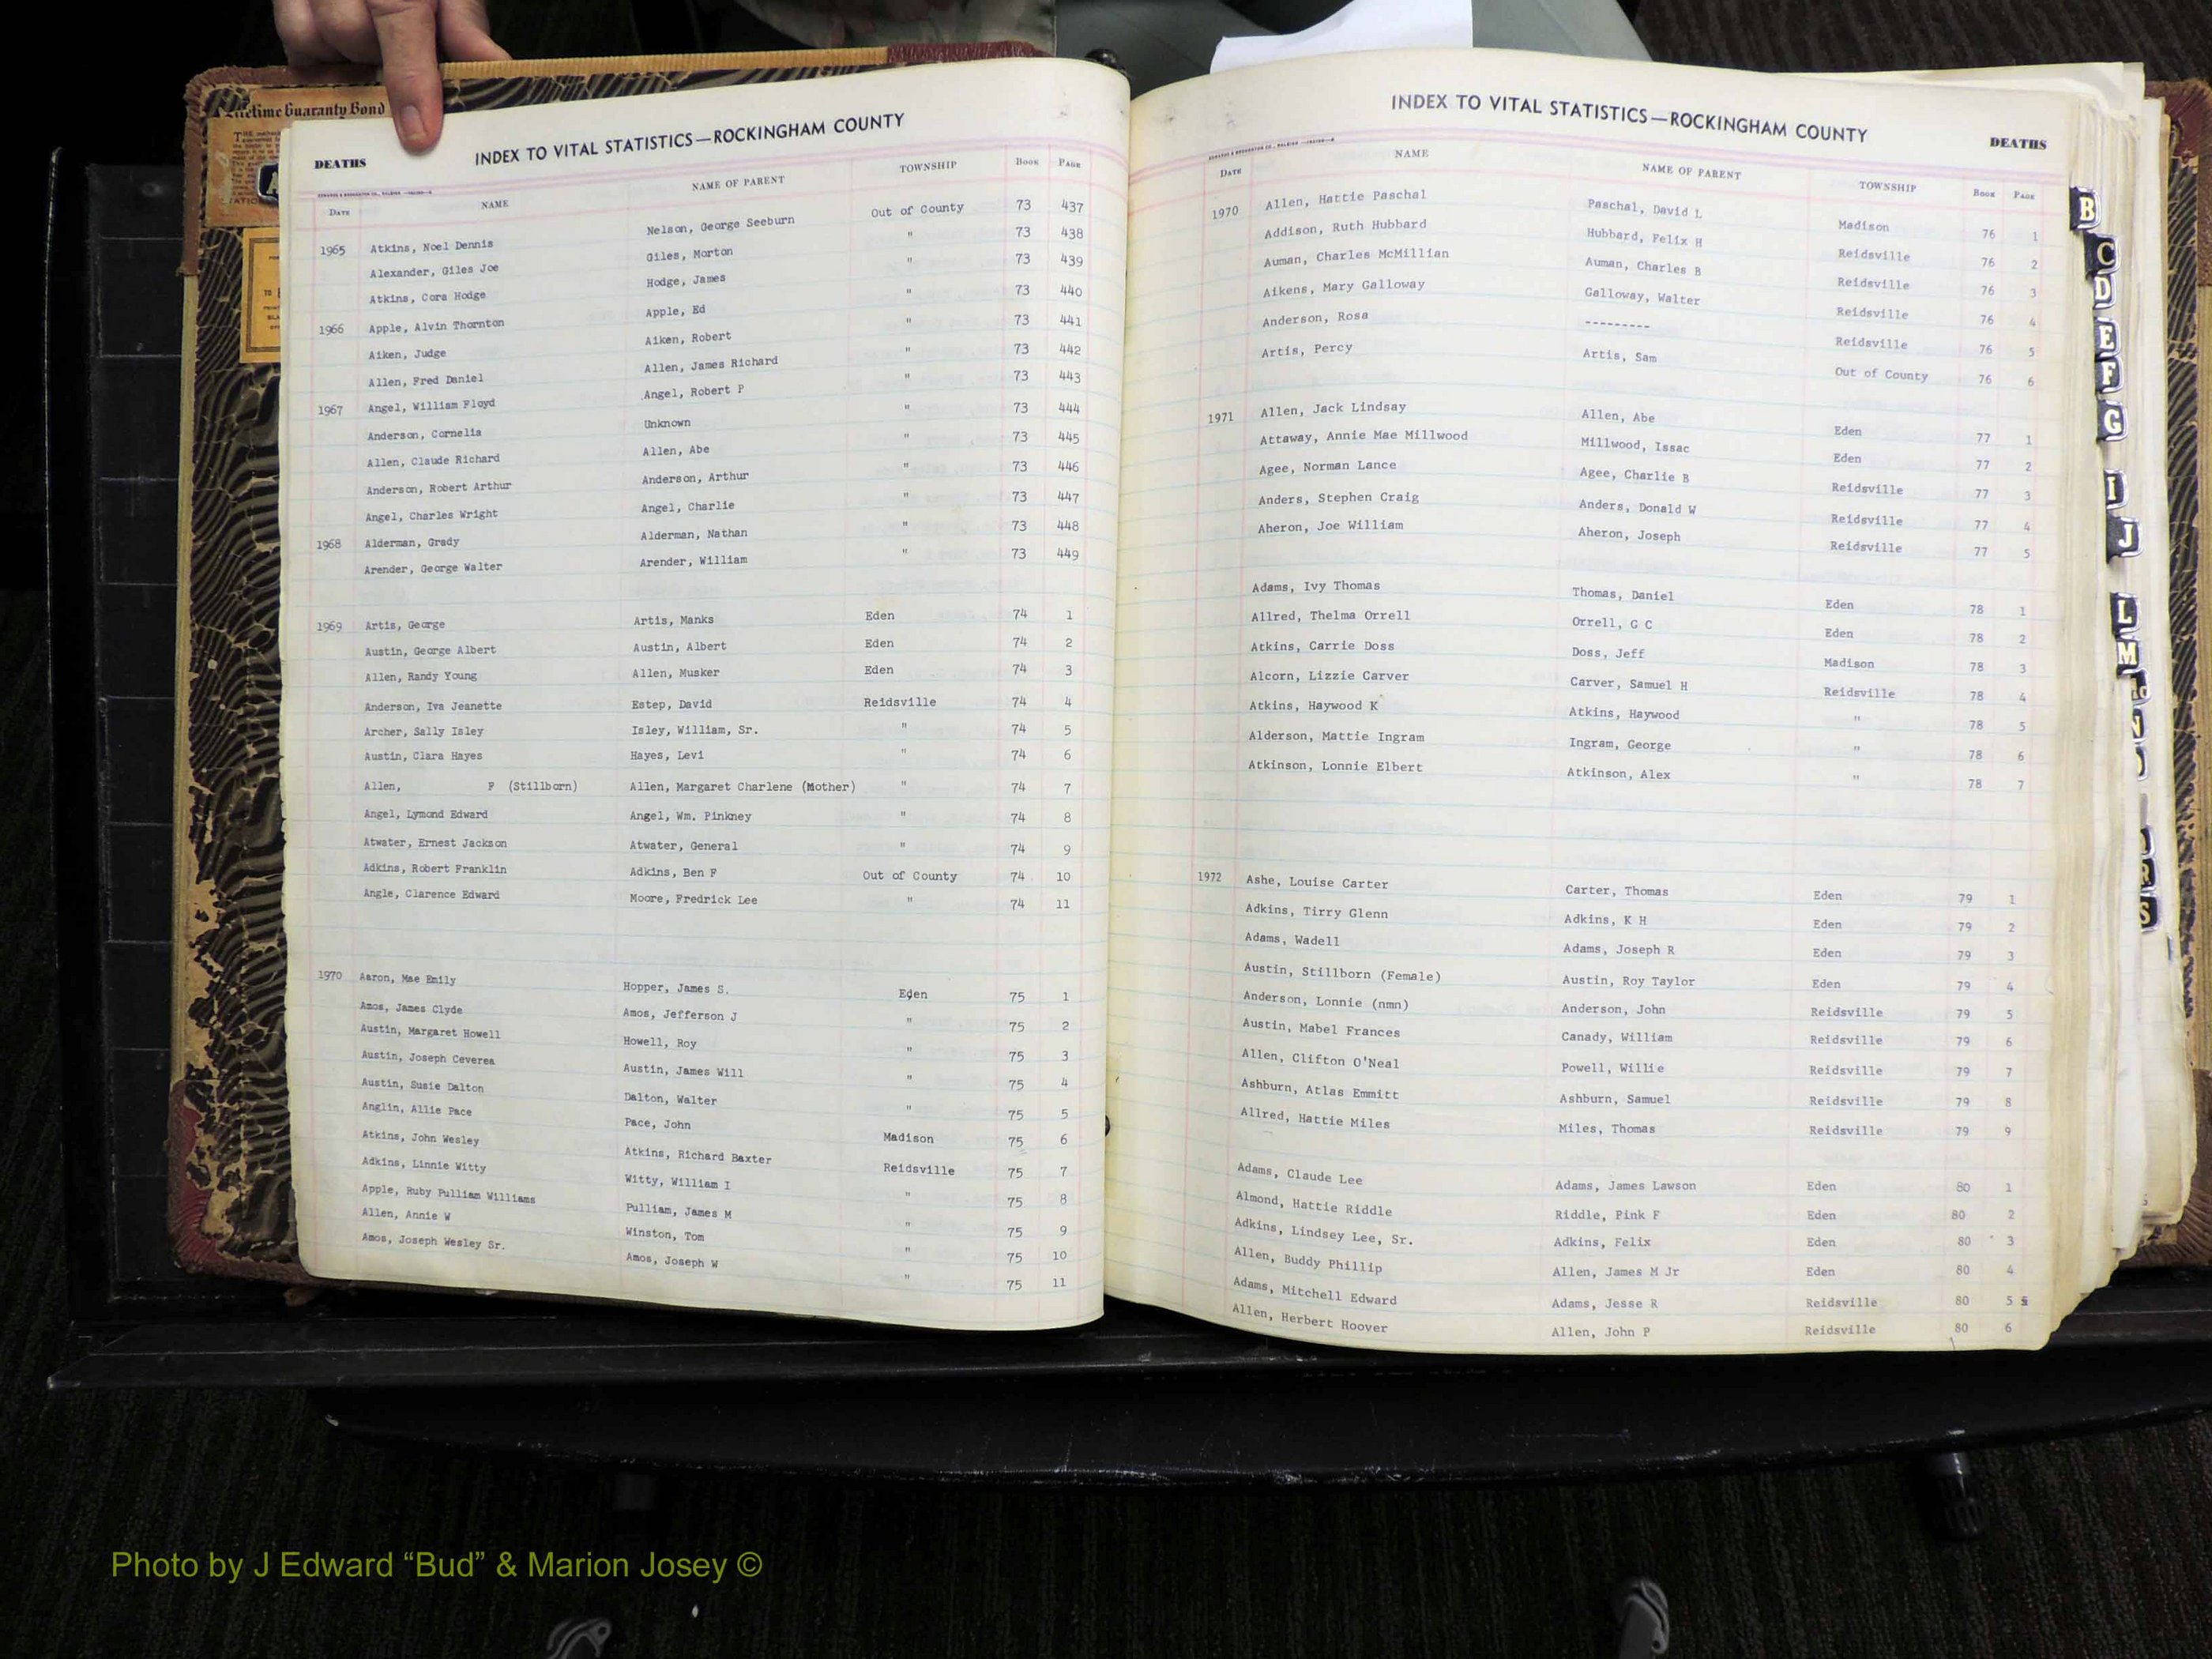 Lifetime Guaranty Bond
INDEX TO VITAL STATISTICS—ROCKINGHAM COUNTY
DEATHS
DATE NAME NAME OF PARENT TOWNSHIP BOOK PAGE
1965 Atkins, Noel Dennis Nelson, George Seeburn Out of County 73 437
Alexander, Giles Joe Giles, Morton " 73 438
Atkins, Cora Hodge Hodge, James " 73 439
1966 Apple, Alvin Thornton Apple, Ed " 73 440
Aiken, Judge Aiken, Robert " 73 441
Allen, Fred Daniel Allen, James Richard " 73 442
1967 Angel, William Floyd Angel, Robert P " 73 443
Anderson, Cornelia Unknown " 73 444
Allen, Claude Richard Allen, Abe " 73 445
Anderson, Robert Arthur Anderson, Arthur " 73 446
Angel, Charles Wright Angel, Charlie " 73 447
1968 Alderman, Grady Alderman, Nathan " 73 448
Arender, George Walter Arender, William " 73 449
1969 Artis, George Artis, Manks Eden 74 1
Austin, George Albert Austin, Albert Eden 74 2
Allen, Randy Young Allen, Musker Eden 74 3
Anderson, Iva Jeanette Estep, David Reidsville 74 4
Archer, Sally Isley Isley, William, Sr. " 74 5
Austin, Clara Hayes Hayes, Levi " 74 6
Allen, F (Stillborn) Allen, Margaret Charlene (Mother) " 74 7
Angel, Lymond Edward Angel, Wm. Pinkney " 74 8
Atwater, Ernest Jackson Atwater, General " 74 9
Adkins, Robert Franklin Adkins, Ben F Out of County 74 10
Angle, Clarence Edward Moore, Fredrick Lee " 74 11
1970 Aaron, Mae Emily Hopper, James S. Eden 75 1
Amos, James Clyde Amos, Jefferson J " 75 2
Austin, Margaret Howell Howell, Roy " 75 3
Austin, Joseph Ceverea Austin, James Will " 75 4
Austin, Susie Dalton Dalton, Walter " 75 5
Anglin, Allie Pace Pace, John Madison 75 6
Atkins, John Wesley Atkins, Richard Baxter Reidsville 75 7
Adkins, Linnie Witty Witty, William I " 75 8
Apple, Ruby Pulliam Williams Pulliam, James M " 75 9
Allen, Annie W Winston, Tom " 75 10
Amos, Joseph Wesley Sr. Amos, Joseph W " 75 11
INDEX TO VITAL STATISTICS—ROCKINGHAM COUNTY
DEATHS
DATE NAME NAME OF PARENT TOWNSHIP BOOK PAGE
1970 Allen, Hattie Paschal Paschal, David L Madison 76 1
Addison, Ruth Hubbard Hubbard, Felix H Reidsville 76 2
Auman, Charles McMillian Auman, Charles B Reidsville 76 3
Aikens, Mary Galloway Galloway, Walter Reidsville 76 4
Anderson, Rosa --------- Reidsville 76 5
Artis, Percy Artis, Sam Out of County 76 6
1971 Allen, Jack Lindsay Allen, Abe Eden 77 1
Attaway, Annie Mae Millwood Millwood, Issac Eden 77 2
Agee, Norman Lance Agee, Charlie B Reidsville 77 3
Anders, Stephen Craig Anders, Donald W Reidsville 77 4
Aheron, Joe William Aheron, Joseph Reidsville 77 5
Adams, Ivy Thomas Thomas, Daniel Eden 78 1
Allred, Thelma Orrell Orrell, G C Eden 78 2
Atkins, Carrie Doss Doss, Jeff Madison 78 3
Alcorn, Lizzie Carver Carver, Samuel H Reidsville 78 4
Atkins, Haywood K Atkins, Haywood " 78 5
Alderson, Mattie Ingram Ingram, George " 78 6
Atkinson, Lonnie Elbert Atkinson, Alex " 78 7
1972 Ashe, Louise Carter Carter, Thomas Eden 79 1
Adkins, Tirry Glenn Adkins, K H Eden 79 2
Adams, Wadell Adams, Joseph R Eden 79 3
Austin, Stillborn (Female) Austin, Roy Taylor Eden 79 4
Anderson, Lonnie (nmn) Anderson, John Reidsville 79 5
Austin, Mabel Frances Canady, William Reidsville 79 6
Allen, Clifton O'Neal Powell, Willie Reidsville 79 7
Ashburn, Atlas Emmitt Ashburn, Samuel Reidsville 79 8
Allred, Hattie Miles Miles, Thomas Reidsville 79 9
Adams, Claude Lee Adams, James Lawson Eden 80 1
Almond, Hattie Riddle Riddle, Pink F Eden 80 2
Adkins, Lindsey Lee, Sr. Adkins, Felix Eden 80 3
Allen, Buddy Phillip Allen, James M Jr Eden 80 4
Adams, Mitchell Edward Adams, Jesse R Reidsville 80 5
Allen, Herbert Hoover Allen, John P Reidsville 80 6
B
C
D
E
F
G
I
J
L
M
N
R
S
Photo by J Edward “Bud” & Marion Josey ©